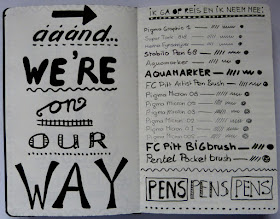 áááánd...
WE'RE
on
OUR
WAY
IK GA OP REIS EN IK NEEM MEE:
Pigma Graphic 1
Stabilo Pen 68
Aquamarker
AQUAMARKER
FC Pitt Artist Pen Brush
Pigma Micron 08
Pigma Micron 05
Pigma Micron 03
Pigma Micron 02
Pigma Micron 01
Pigma Micron 005
FC Pitt BIGbrush
Pentel Pocket brush
PENS PENS PENS